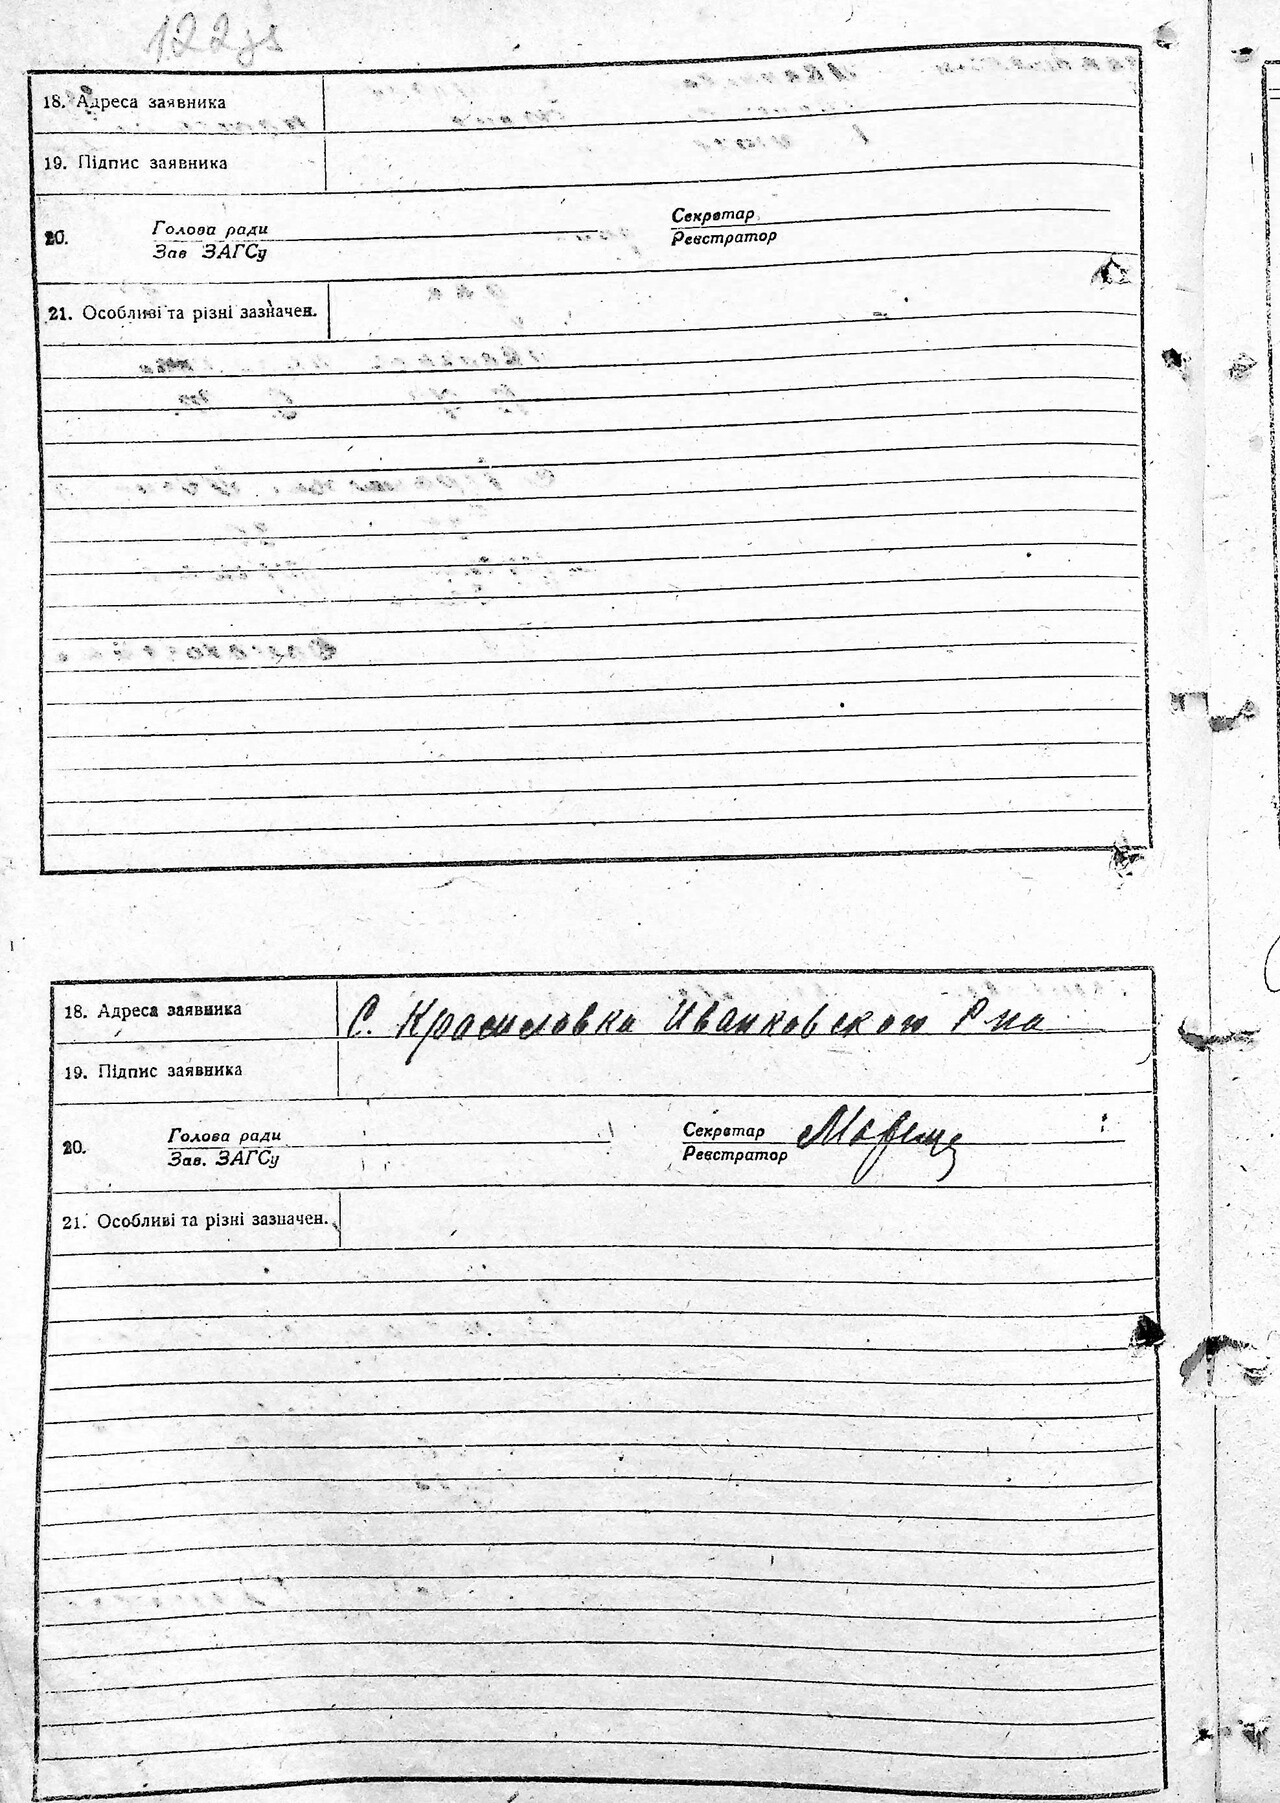 122
18. Адреса заявника
19. Підпис заявника
20. Голова ради Секретар
Зав ЗАГСу Реєстратор
21. Особливі та різні зазначен.
18. Адреса заявника С. Красиловка Иванковского Р на
19. Підпис заявника
20. Голова ради Секретар
Зав. ЗАГСу Реєстратор
21. Особливі та різні зазначен.